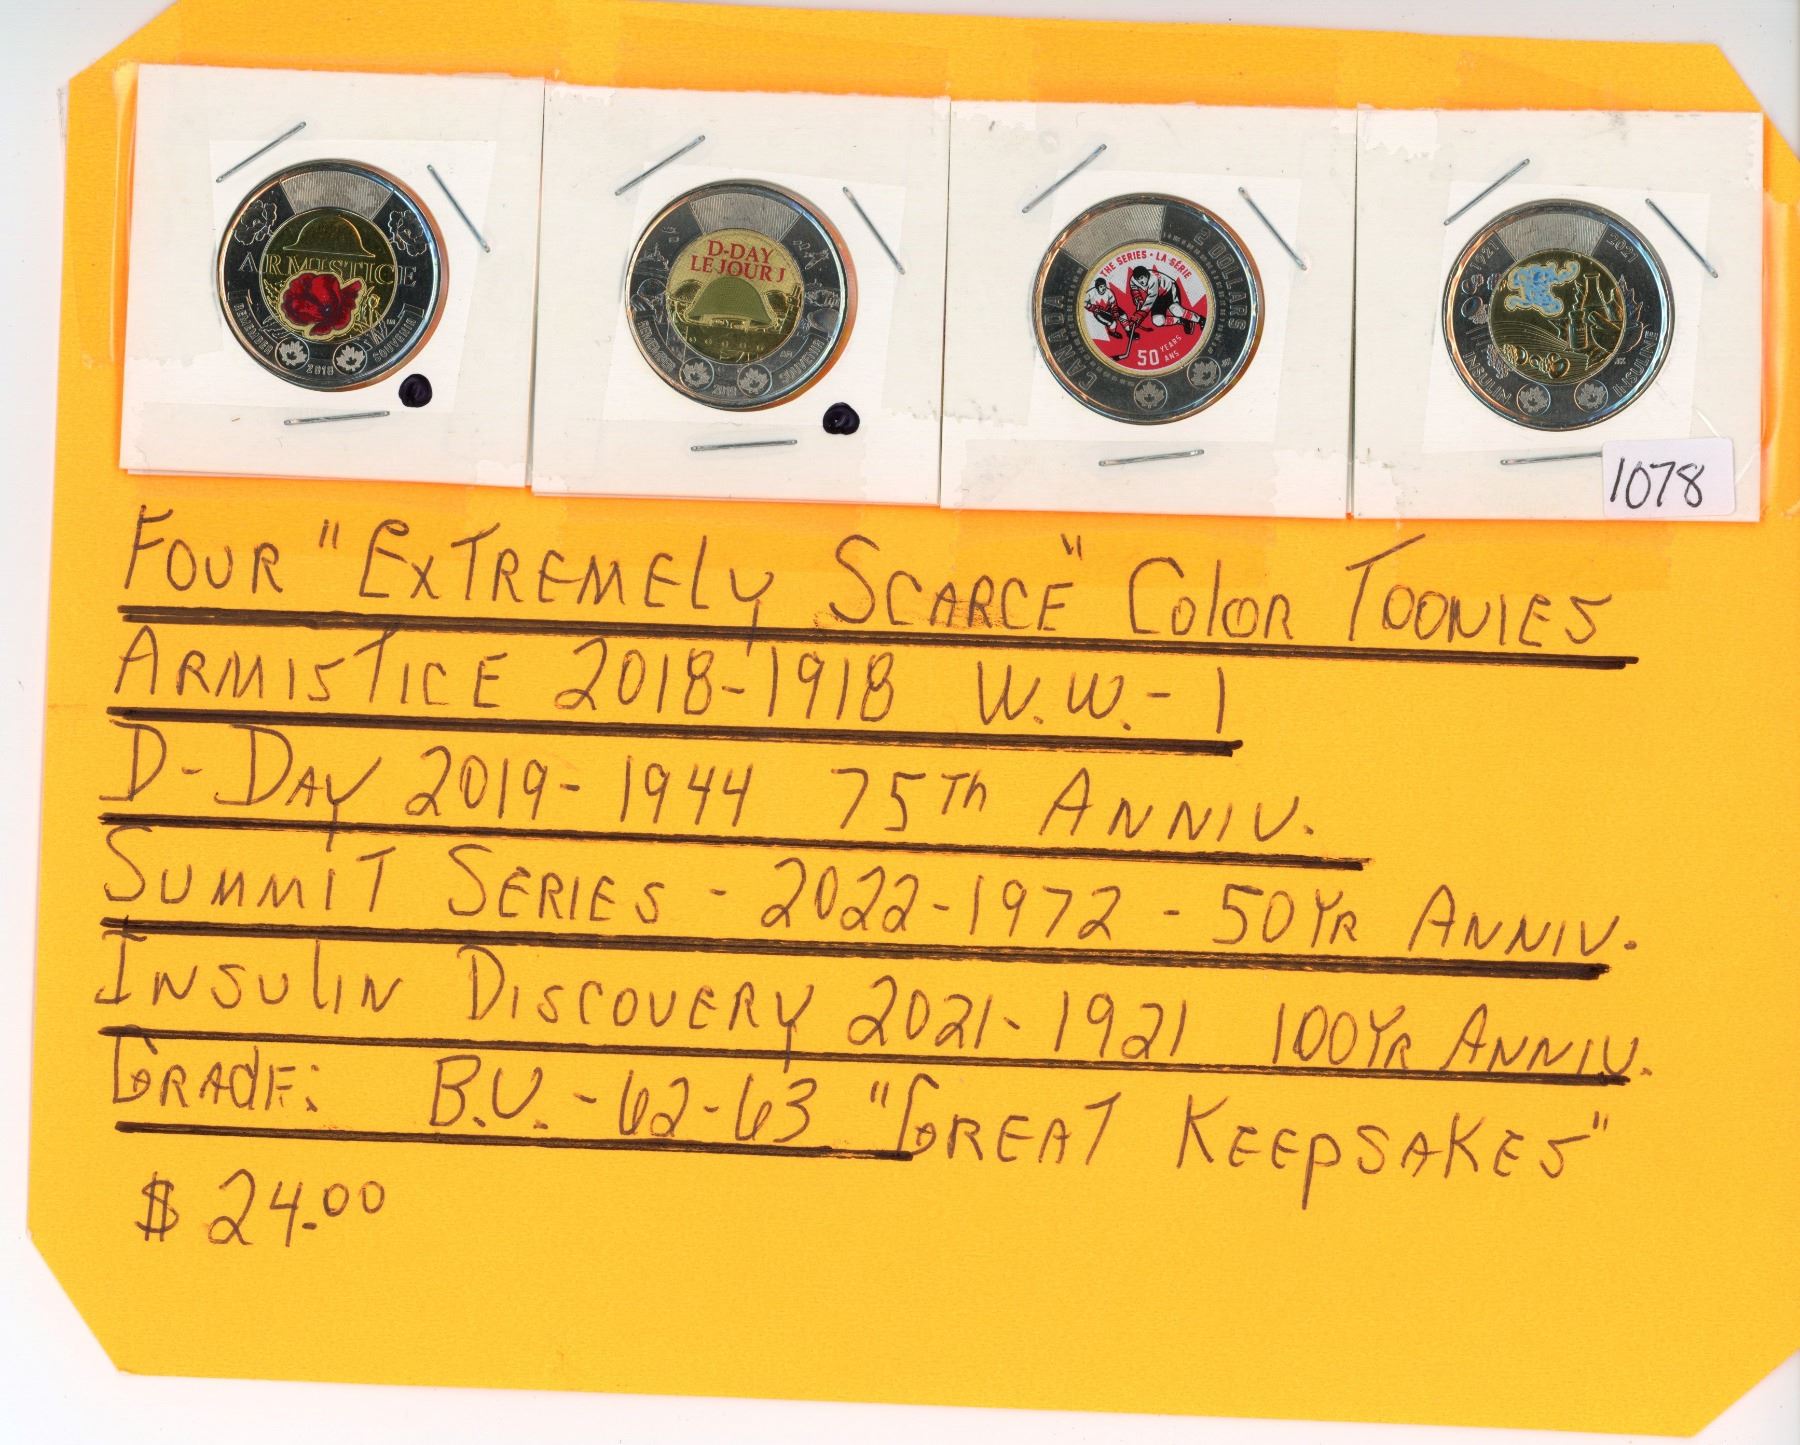 ARMISTICE
REMEMBER
SOUVENIR
2018
D-DAY
LE JOUR J
REMEMBER
SOUVENIR
2019
THE SERIES • LA SÉRIE
50 YEARS ANS
CANADA
2 DOLLARS
1921
2021
INSULIN
INSULINE
1078
FOUR "EXTREMELY SCARCE" COLOR TOONIES
ARMISTICE 2018-1918 W.W.-1
D-DAY 2019-1944 75TH ANNIV.
SUMMIT SERIES - 2022-1972 - 50YR ANNIV.
INSULIN DISCOVERY 2021-1921 100YR ANNIV.
GRADE: B.U.-62-63 "GREAT KEEPSAKES"
$24.00